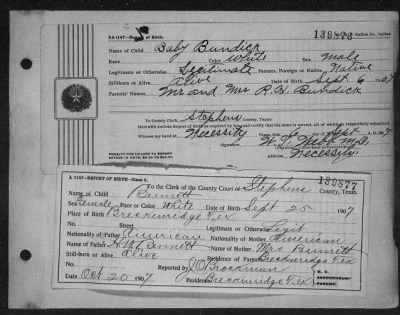 EA 1147—Report of Birth.
139876
Name of Child Baby Bundick
Race Color White Sex Male
Legitimate or Otherwise Legitimate Parents, Foreign or Native Native
Stillborn or Alive Alive Date of Birth Sept 6 1907
Parents' Names Mr and Mrs R. H. Bundick
To County Clerk, Stephens County, Texas:
Witness my hand at Necessity
Signature W. L. Webb M.D.
PENALTY FOR FAILURE TO REPORT
Address Necessity.
A 1147—REPORT OF BIRTH—Class 5.
139877
To the Clerk of the County Court of Stephens County, Texas.
Name of Child Bennett
Sex Female Race or Color White Date of Birth Sept 25 1907
Place of Birth Breckenridge Tex
No. Street Legitimate or Otherwise Legit
Nationality of Father American Nationality of Mother American
Name of Father Bennett Name of Mother Mrs Bennett
Still-born or Alive alive Residence Breckenridge Tex
Date Oct 20 1907 Reported by J.O. Brockman
Residence Breckenridge Tex